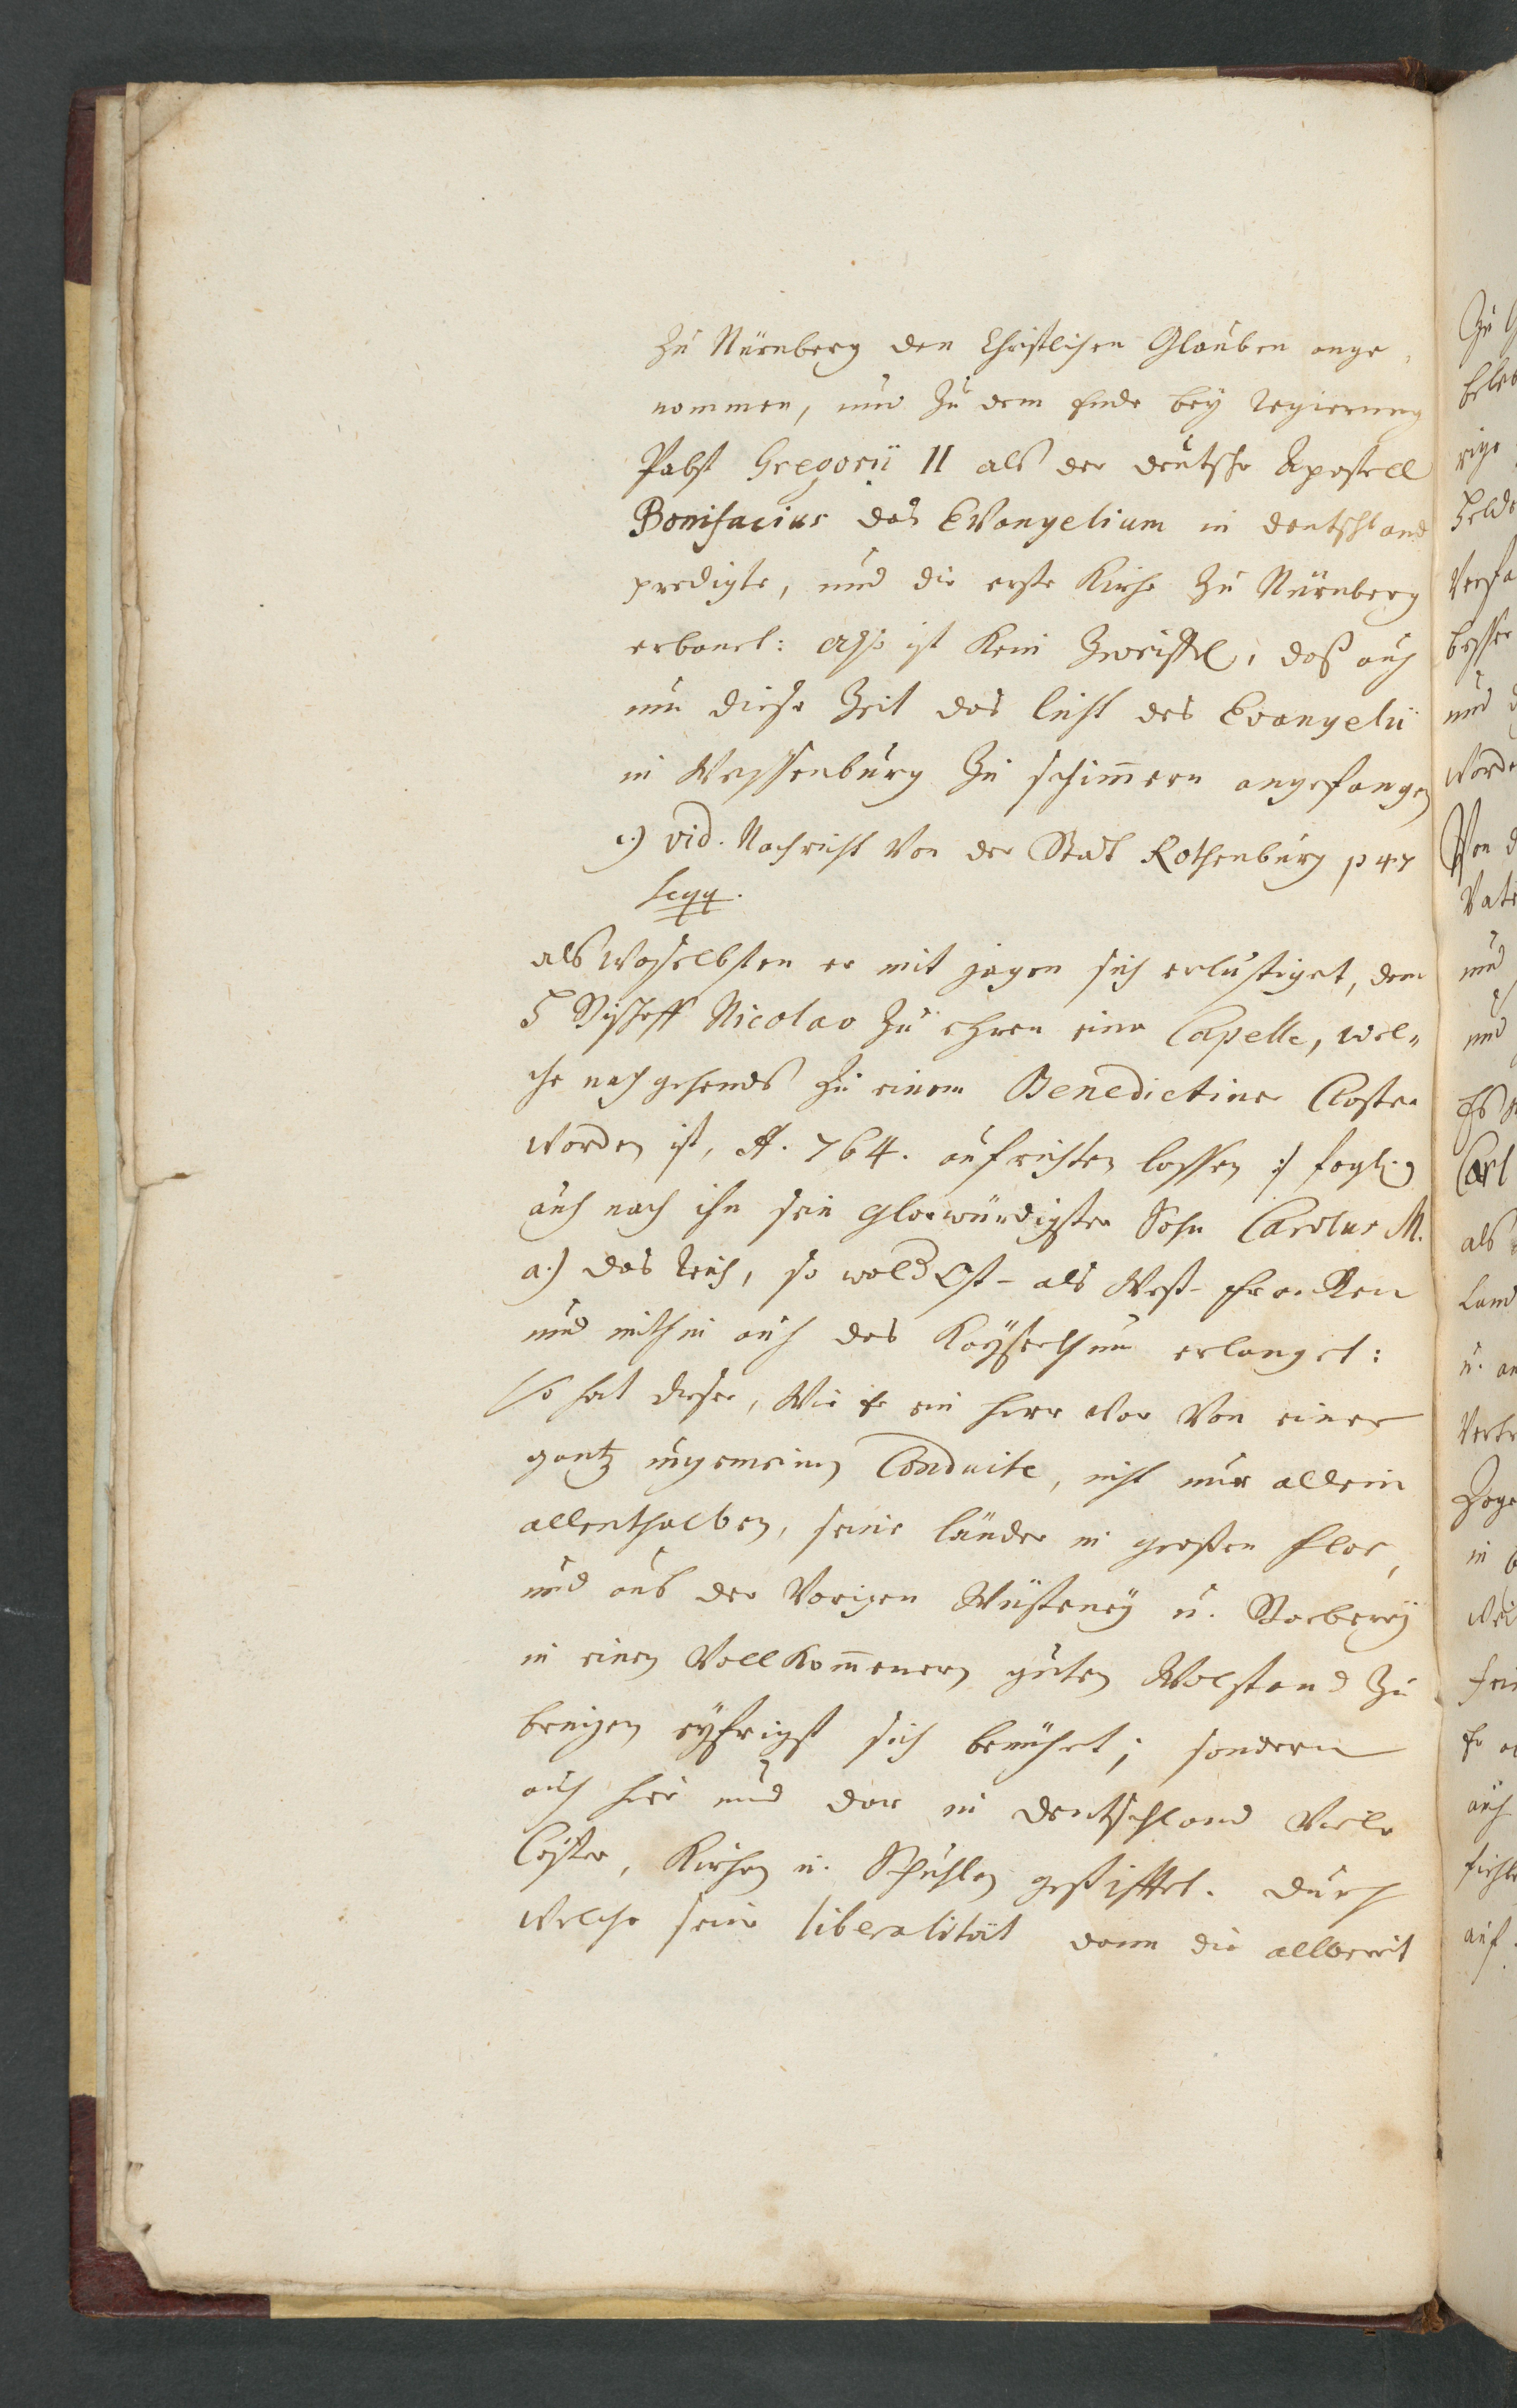 zu Nürnberg den Christlichen Glauben ange-
nommen, und zu dem Ende beÿ Regierung
Pabst Gregorii II als der deutsche Apostell
Bonifacius das Evangelium in deutschland
predigte, und die erste Kirche zu Nürnberg
erbauet: Also ist kein Zweiffel, daß auch
um diese Zeit das licht des Evangelii
in Weyssenburg zu schim̄ern angefangen
c.) vid. Nachricht von der Statt Rothenburg p 47
seqq.
als woselbsten er mit jagen sich erlustiget, dem
H Bischoff Nicolao zu ehren eine Capelle, wel„
che nachgehends zu einem Benedictiner Closter
worden ist, A. 764. aufrichten lassen :/ folglich
auch nach ihn sein glorwürdigster Sohn Carolus M.
a.) das Reich, so wohl Ost- als West-Francken
und mithin auch das Kaÿserthum erlanget:
So hat dieser, wie er ein Herr war von einer
gantz ungemeinen Conduite, nicht nur allein
allenthalben, seine länder in großen Flor,
und aus der vorigen Wüsteneÿ u. Barbareÿ
in einen vollkom̄enern guten Wolstand zu
bringen eÿfrigst sich bemühet; sondern
auch hier und dar in deutschland viele
Clöster, Kirchen u. Schuhlen gestifftet. durch
welche seine liberalität dann die allbereit